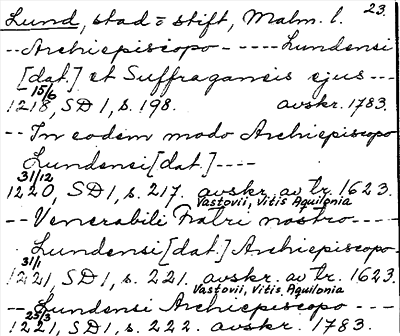 Lund, stad o stift, Malm. l. 23.
-- Archiepiscopo ----- Lundensi
[dat.] et Suffraganeis ejus ---
15/6
1218, SD 1, s. 198. avskr. 1783.
-- In eodem modo Archiepiscopo
Lundensi [dat.] ----
31/12
1220, SD 1, s. 217. avskr. av tr. 1623.
Vastovii, Vitis Aquilonia
-- Venerabili Fratri nostro ----
Lundensi [dat.] Archiepiscopo
31/1
1221, SD 1, s. 221. avskr. av tr. 1623.
Vastovii, Vitis Aquilonia
-- Lundensi Archiepiscopo ---
25/3
1221, SD 1, s. 222. avskr. 1783.